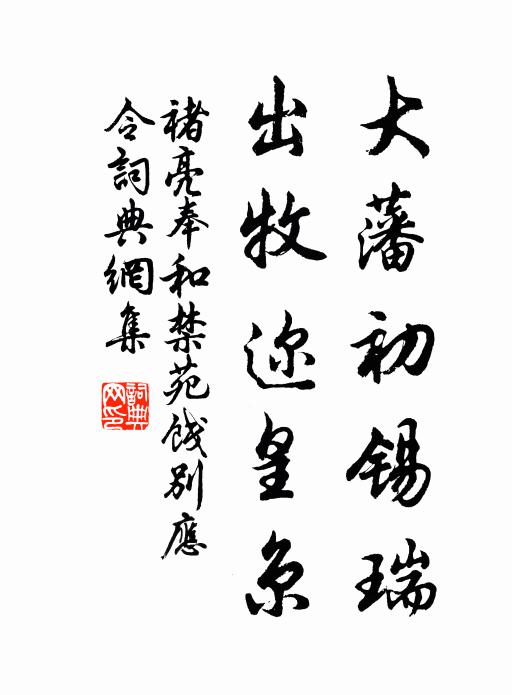 大藩初锡瑞
出牧迩皇京
褚亮奉和禁苑饯别應
令詞典網集
詞典网印